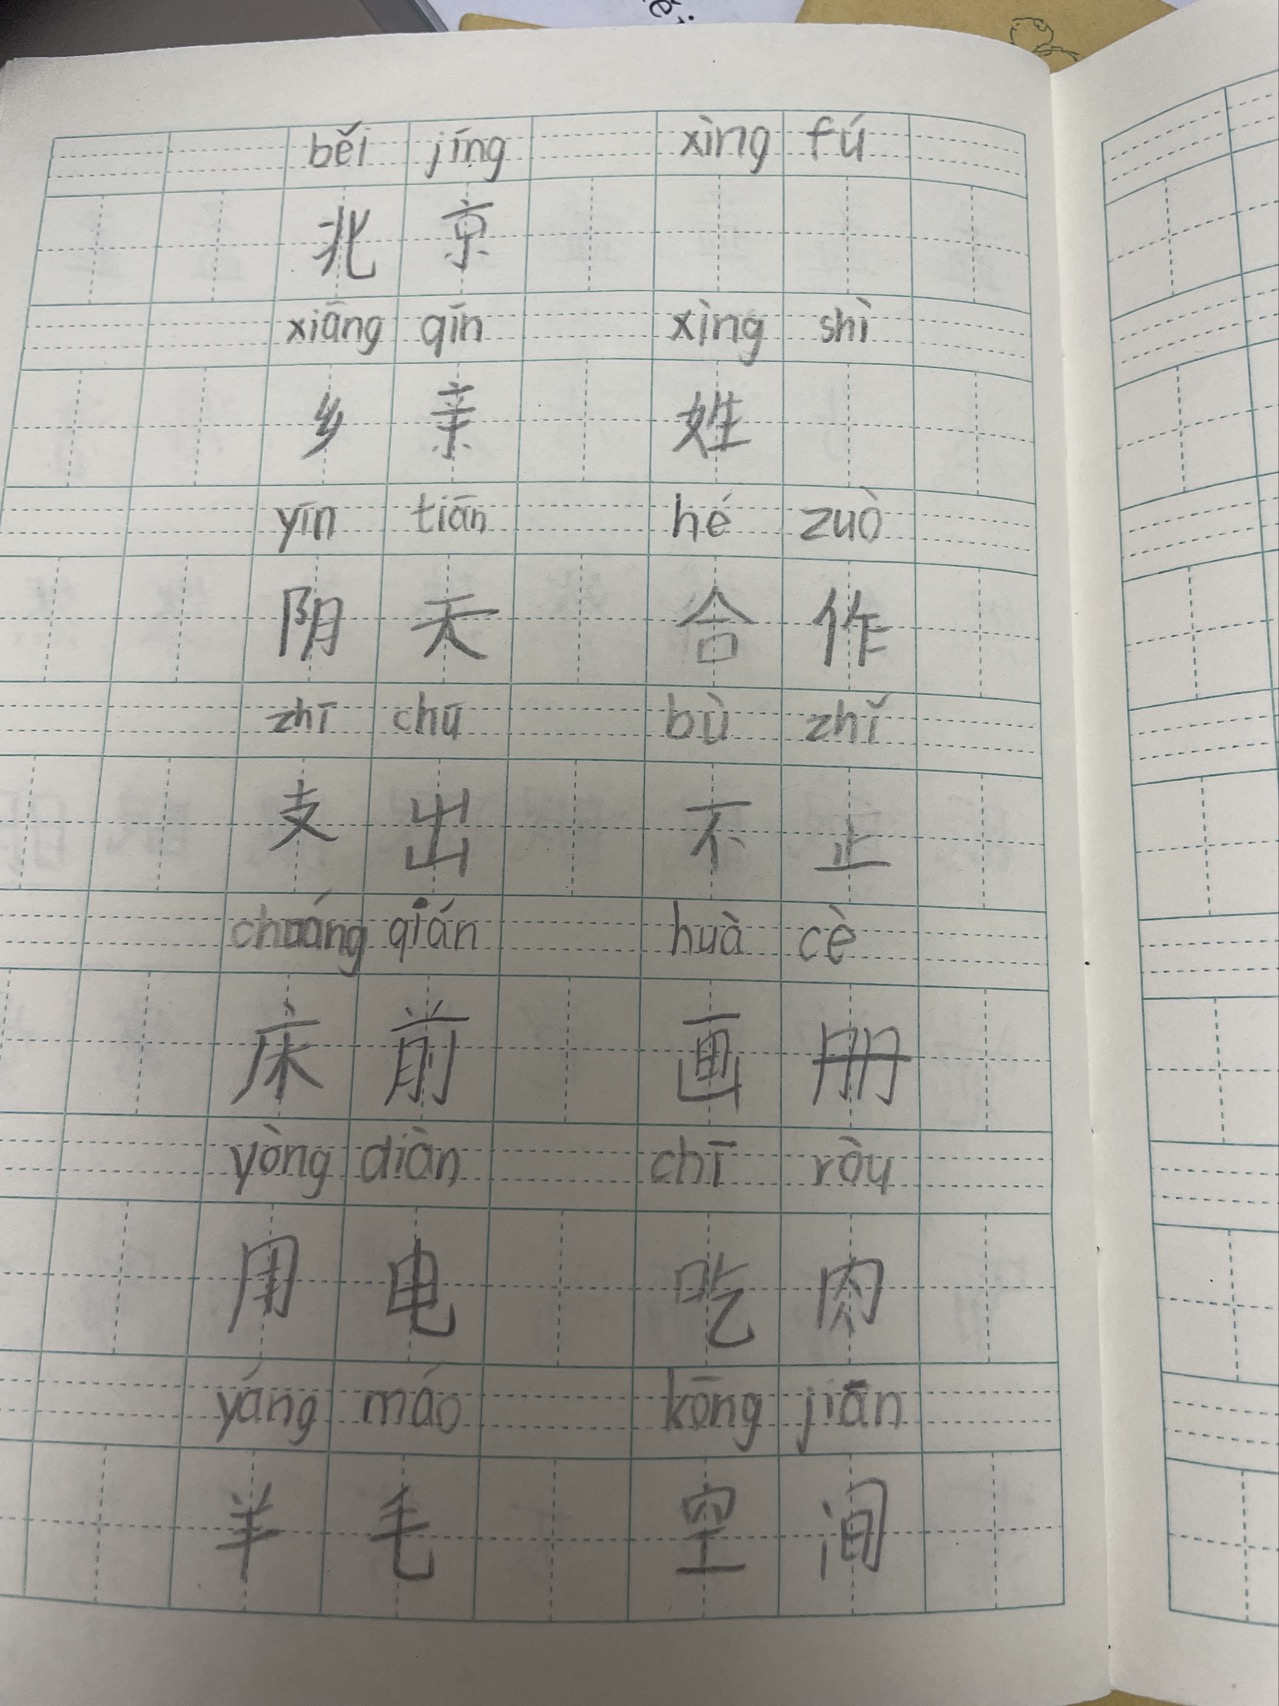 běi jīng xìng fú
北京
xiāng qīn xìng shì
乡亲 姓
yīn tiān hé zuò
阴天 合作
zhī chū bù zhǐ
支出 不止
chuáng qián huà cè
床前 画册
yòng diàn chī ròu
用电 吃肉
yáng máo kōng jiān
羊毛 空间